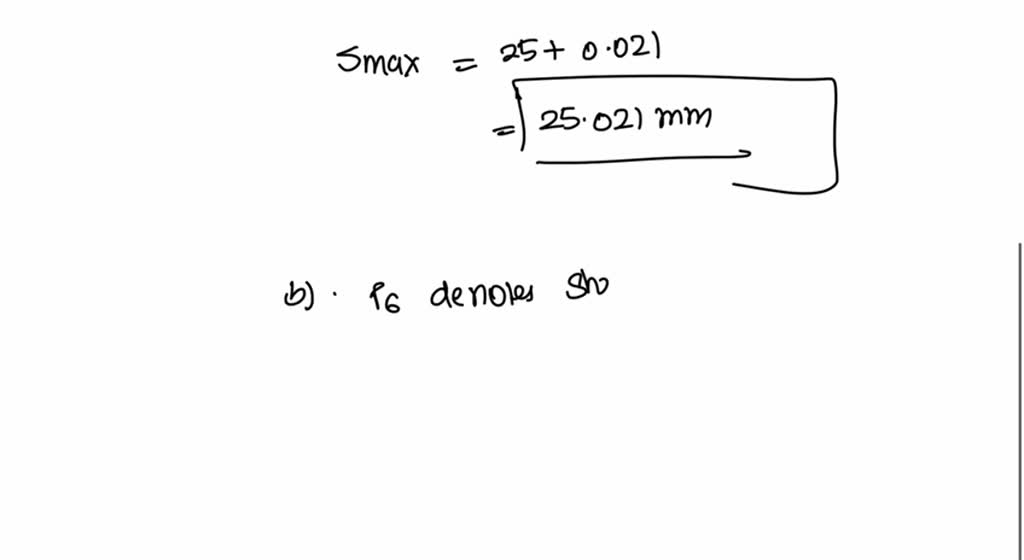 Smax = 25+ 0.021
= 25.021 mm
b). P6 denotes Sho